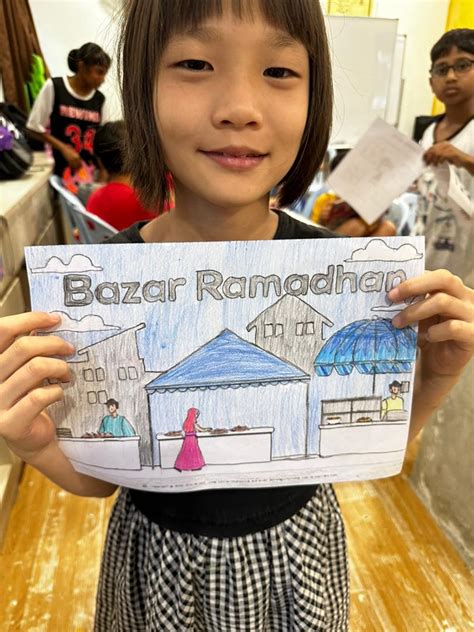 Bazar Ramadhan
34